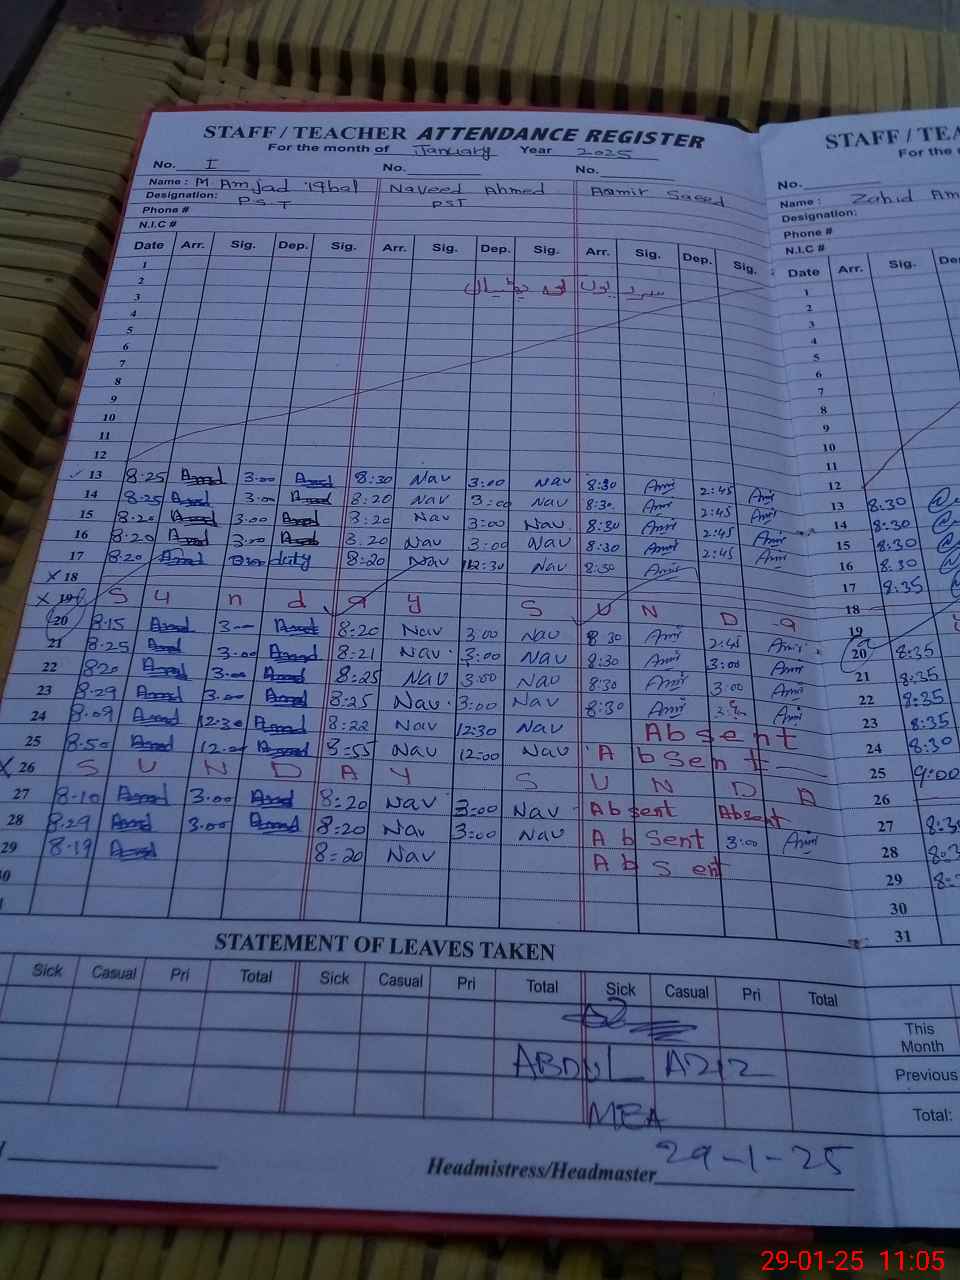 STAFF / TEACHER ATTENDANCE REGISTER
For the month of January Year 2025
No. I No. No.
Name : M. Amjad Iqbal Naveed Ahmed Aamir Saeed
Designation: P.S.T PST
Phone #
N.I.C #
Date Arr. Sig. Dep. Sig. Arr. Sig. Dep. Sig. Arr. Sig. Dep. Sig.
1
2
3
4
5
6
7
8
9
10
11
12
13 8:25 3:00 8:30 Nav 3:00 Nav 8:30 2:45
14 8:25 3:00 8:20 Nav 3:00 Nav 8:30 2:45
15 8:20 3:00 3:20 Nav 3:00 Nav 8:30 2:45
16 8:20 3:00 3:20 Nav 3:00 Nav 8:30 2:45
17 8:20 on duty 8:20 Nav 12:30 Nav 8:30
X 18
X 19 S u n d a y S U N D a
20 8:15 3 — 8:20 Nav 3:00 Nav 8:30 2:45
21 8:25 3:00 8:21 Nav 3:00 Nav 8:30 3:00
22 8:20 3:00 8:25 Nav 3:00 Nav 8:30 3:00
23 8:29 3:00 8:25 Nav 3:00 Nav 8:30
24 8:09 12:30 8:22 Nav 12:30 Nav Absent
25 8:50 8=55 Nav 12:00 Nav AbSent
X 26 S U N D A Y S U N D A
27 8:10 3:00 8=20 Nav 3:00 Nav Absent Absent
28 8:29 3:00 8=20 Nav 3=00 Nav AbSent 3:00
29 8:19 8=20 Nav AbSent
STATEMENT OF LEAVES TAKEN
Sick Casual Pri Total Sick Casual Pri Total Sick Casual Pri Total
ABDUL AZIZ
MEA
Headmistress/Headmaster 29-1-25
STAFF / TEA
For the
No.
Name : Zahid Am
Designation:
Phone #
N.I.C #
Date Arr. Sig. De
1
2
3
4
5
6
7
8
9
10
11
12
13 8:30
14 8:30
15 8:30
16 8:30
17 8:35
18
19
20 8:35
21 8:35
22 8:35
23 8:35
24 8:30
25 9:00
26
27 8:3
28 8:3
29 8:
30
31
This
Month
Previous
Total:
29-01-25 11:05